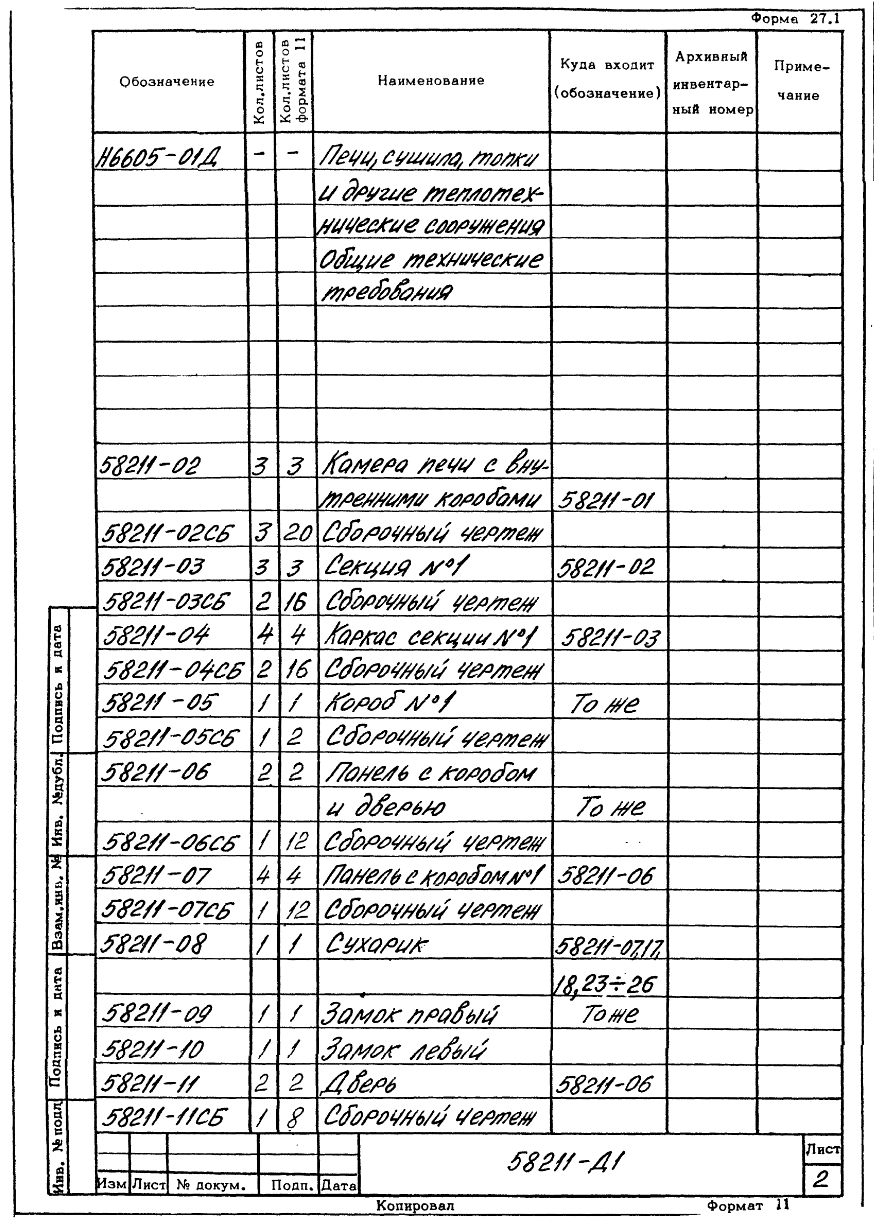 Форма 27.1
Обозначение Кол.листов Кол.листов формата 11 Наименование Куда входит (обозначение) Архивный инвентарный номер Примечание
Н6605-01Д - - Печи, сушила, топки
и другие теплотех-
нические сооружения
Общие технические
требования
58211-02 3 3 Камера печи с вну-
тренними коробами 58211-01
58211-02СБ 3 20 Сборочный чертеж
58211-03 3 3 Секция №1 58211-02
58211-03СБ 2 16 Сборочный чертеж
58211-04 4 4 Каркас секции №1 58211-03
58211-04СБ 2 16 Сборочный чертеж
58211-05 1 1 Короб №1 То же
58211-05СБ 1 2 Сборочный чертеж
58211-06 2 2 Панель с коробом
и дверью То же
58211-06СБ 1 12 Сборочный чертеж
58211-07 4 4 Панель с коробом №1 58211-06
58211-07СБ 1 12 Сборочный чертеж
58211-08 1 1 Сухарик 58211-07,17,
18,23÷26
58211-09 1 1 Замок правый То же
58211-10 1 1 Замок левый
58211-11 2 2 Дверь 58211-06
58211-11СБ 1 8 Сборочный чертеж
Инв. № подл Подпись и дата Взам.инв. № Инв. №дубл. Подпись и дата
58211-Д1
Лист
2
Изм Лист № докум. Подп. Дата
Копировал Формат 11